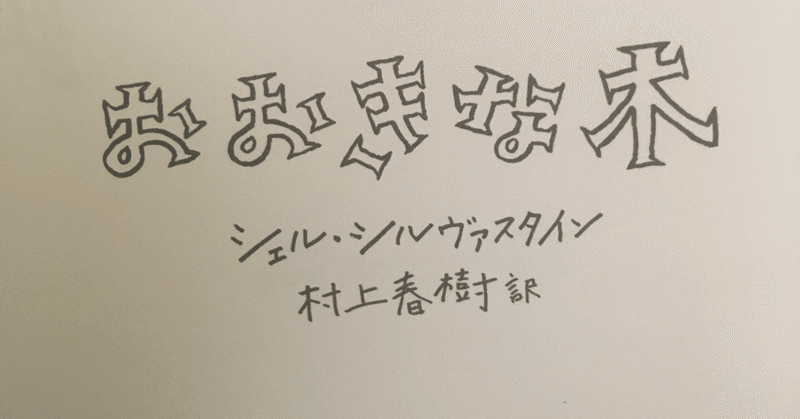 おおきな木
シェル・シルヴァスタイン
村上春樹訳